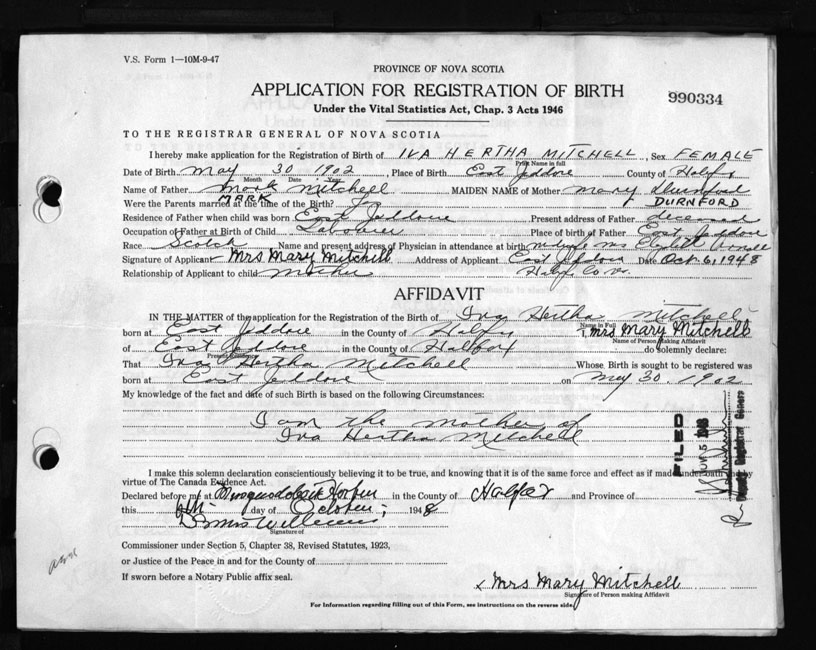 V.S. Form 1—10M-9-47
PROVINCE OF NOVA SCOTIA
APPLICATION FOR REGISTRATION OF BIRTH
990334
Under the Vital Statistics Act, Chap. 3 Acts 1946
TO THE REGISTRAR GENERAL OF NOVA SCOTIA
I hereby make application for the Registration of Birth of IVA HERTHA MITCHELL, Sex FEMALE
Print Name in full
Date of Birth May 30 1902, Place of Birth East Jeddore County of Halfx
Month Date Year
Name of Father Mark Mitchell MAIDEN NAME of Mother Mary Durnford
MARK DURNFORD
Were the Parents married at the time of the Birth? Yes
Residence of Father when child was born East Jeddore Present address of Father deceased
Occupation of Father at Birth of Child Labourer Place of birth of Father East Jeddore
Race Scotch Name and present address of Physician in attendance at birth midwife Mrs Elizabeth
Signature of Applicant Mrs Mary Mitchell Address of Applicant East Jeddore Date Oct. 6, 1948
Relationship of Applicant to child Mother Halfx. Co
AFFIDAVIT
IN THE MATTER of the application for the Registration of the Birth of Iva Hertha Mitchell
Name in Full
born at East Jeddore in the County of Halfx I, Mrs Mary Mitchell
Name of Person Making Affidavit
of East Jeddore in the County of Halifax do solemnly declare:
Present Residence
That Iva Hertha Mitchell Whose Birth is sought to be registered was
born at East Jeddore on May 30. 1902
My knowledge of the fact and date of such Birth is based on the following Circumstances:
I am the mother of
Iva Hertha Mitchell
FILED
1948
Deputy Registrar General
I make this solemn declaration conscientiously believing it to be true, and knowing that it is of the same force and effect as if made under oath and by
virtue of The Canada Evidence Act.
Declared before me at Musquodoboit Harbour in the County of Halifax and Province of
this 6th day of October, 1948
Signature of
Commissioner under Section 5, Chapter 38, Revised Statutes, 1923,
or Justice of the Peace in and for the County of
If sworn before a Notary Public affix seal.
x Mrs Mary Mitchell
Signature of Person making Affidavit
For Information regarding filling out of this Form, see instructions on the reverse side.